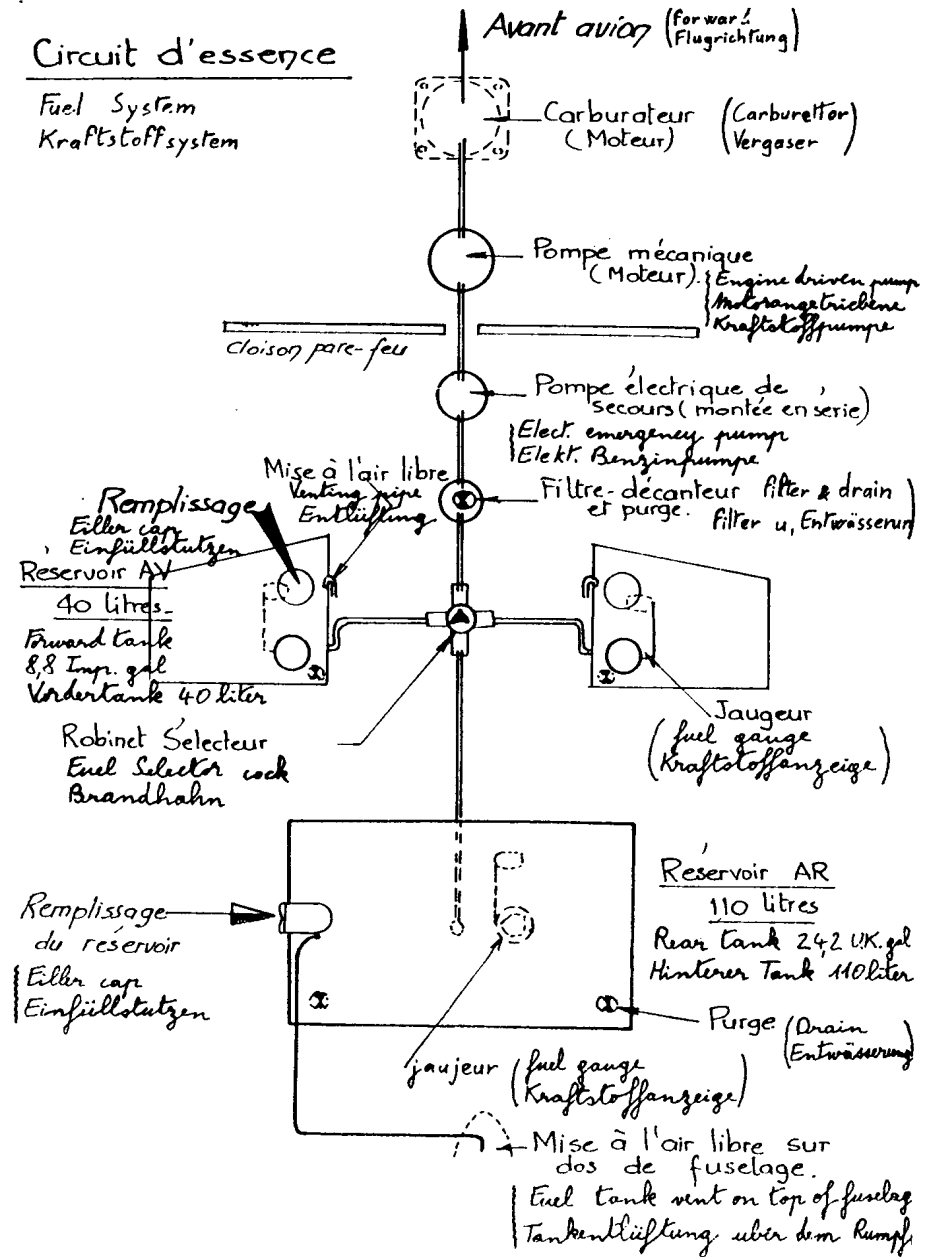 Circuit d'essence
Fuel System
Kraftstoffsystem
Avant avion (forwar!
Flugrichtung)
Carburateur
(Moteur)
(Carburettor
Vergaser)
Pompe mécanique
(Moteur).
Engine driven pump
Motorangetriebene
Kraftstoffpumpe
Cloison pare-feu
Pompe électrique de
secours (montée en série)
Elect. emergency pump
Elekt. Benzinpumpe
Mise à l'air libre
Venting pipe
Entlüftung
Filtre-décanteur
et purge.
filter & drain
filter u, Entwässerun)
Remplissage
Filler cap
Einfüllstutzen
Réservoir AV
40 litres-
Forward tank
8,8 Imp. gal
Vordertank 40 liter
Robinet Sélecteur
Fuel Selector cock
Brandhahn
Jaugeur
(fuel gauge
Kraftstoffanzeige)
Réservoir AR
110 litres
Rear tank 24,2 U.K. gal
Hinterer Tank, 110 liter
Remplissage
du réservoir
Filler cap
Einfüllstutzen
Purge (Drain
Entwässerung)
jaujeur (fuel gauge
Kraftstoffanzeige)
Mise à l'air libre sur
dos de fuselage.
Fuel tank vent on top of fuselag
Tankentlüftung über dem Rumpf